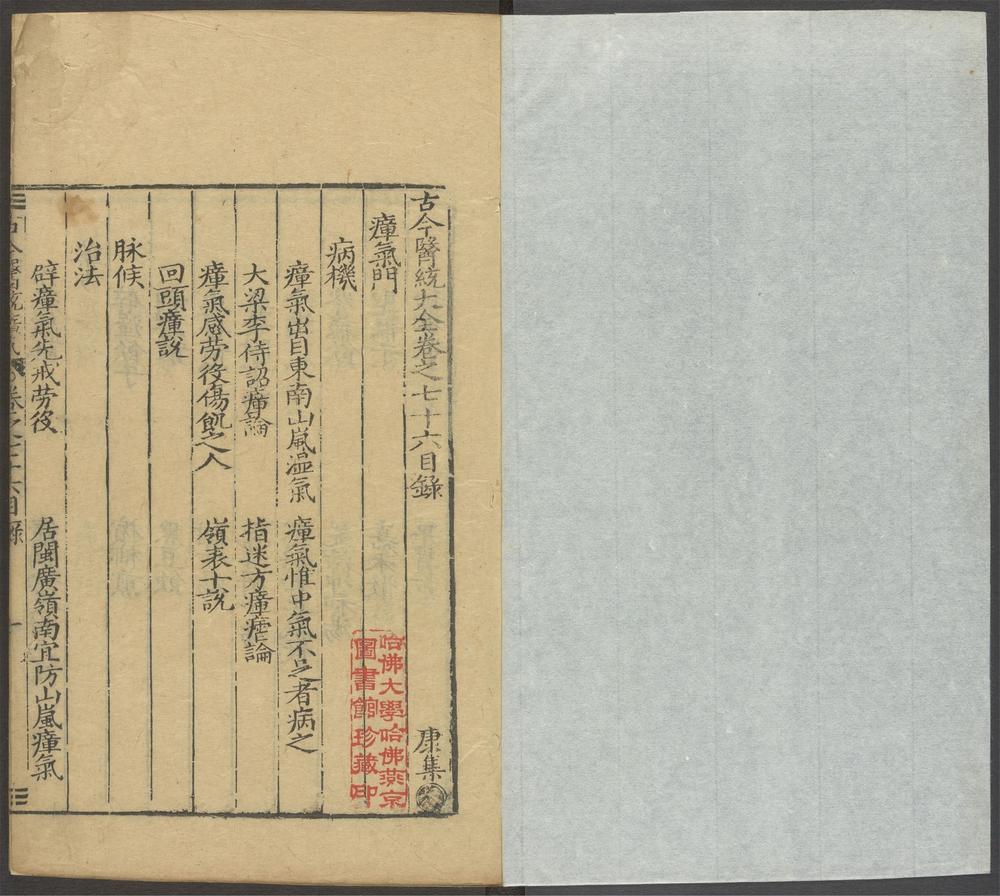 古今醫統大全卷之七十六目錄 康集
瘴氣門
病機
瘴氣出自東南山嵐溫氣 瘴氣惟中氣不足者病之
大梁李待詔瘴論 指迷方瘴瘧論
瘴氣感勞役傷飢之人 嶺表十說
回頭瘴說
脉候
治法
辟瘴氣先戒勞役 居閩廣嶺南宜防山嵐瘴氣
卷之七十六目錄 一
哈佛大學哈佛燕京
圖書館珍藏印